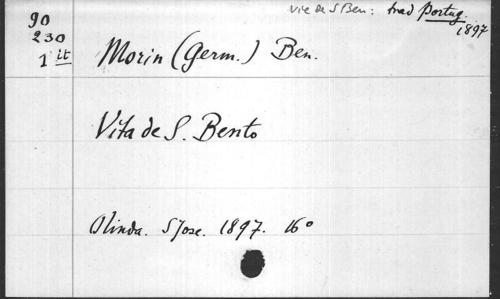 90
230
1 it
Vie de S Ben: trad Portug.
1897
Morin (Germ.) Ben.
Vita de S. Bento
Olinda. S Jose. 1897. 16°